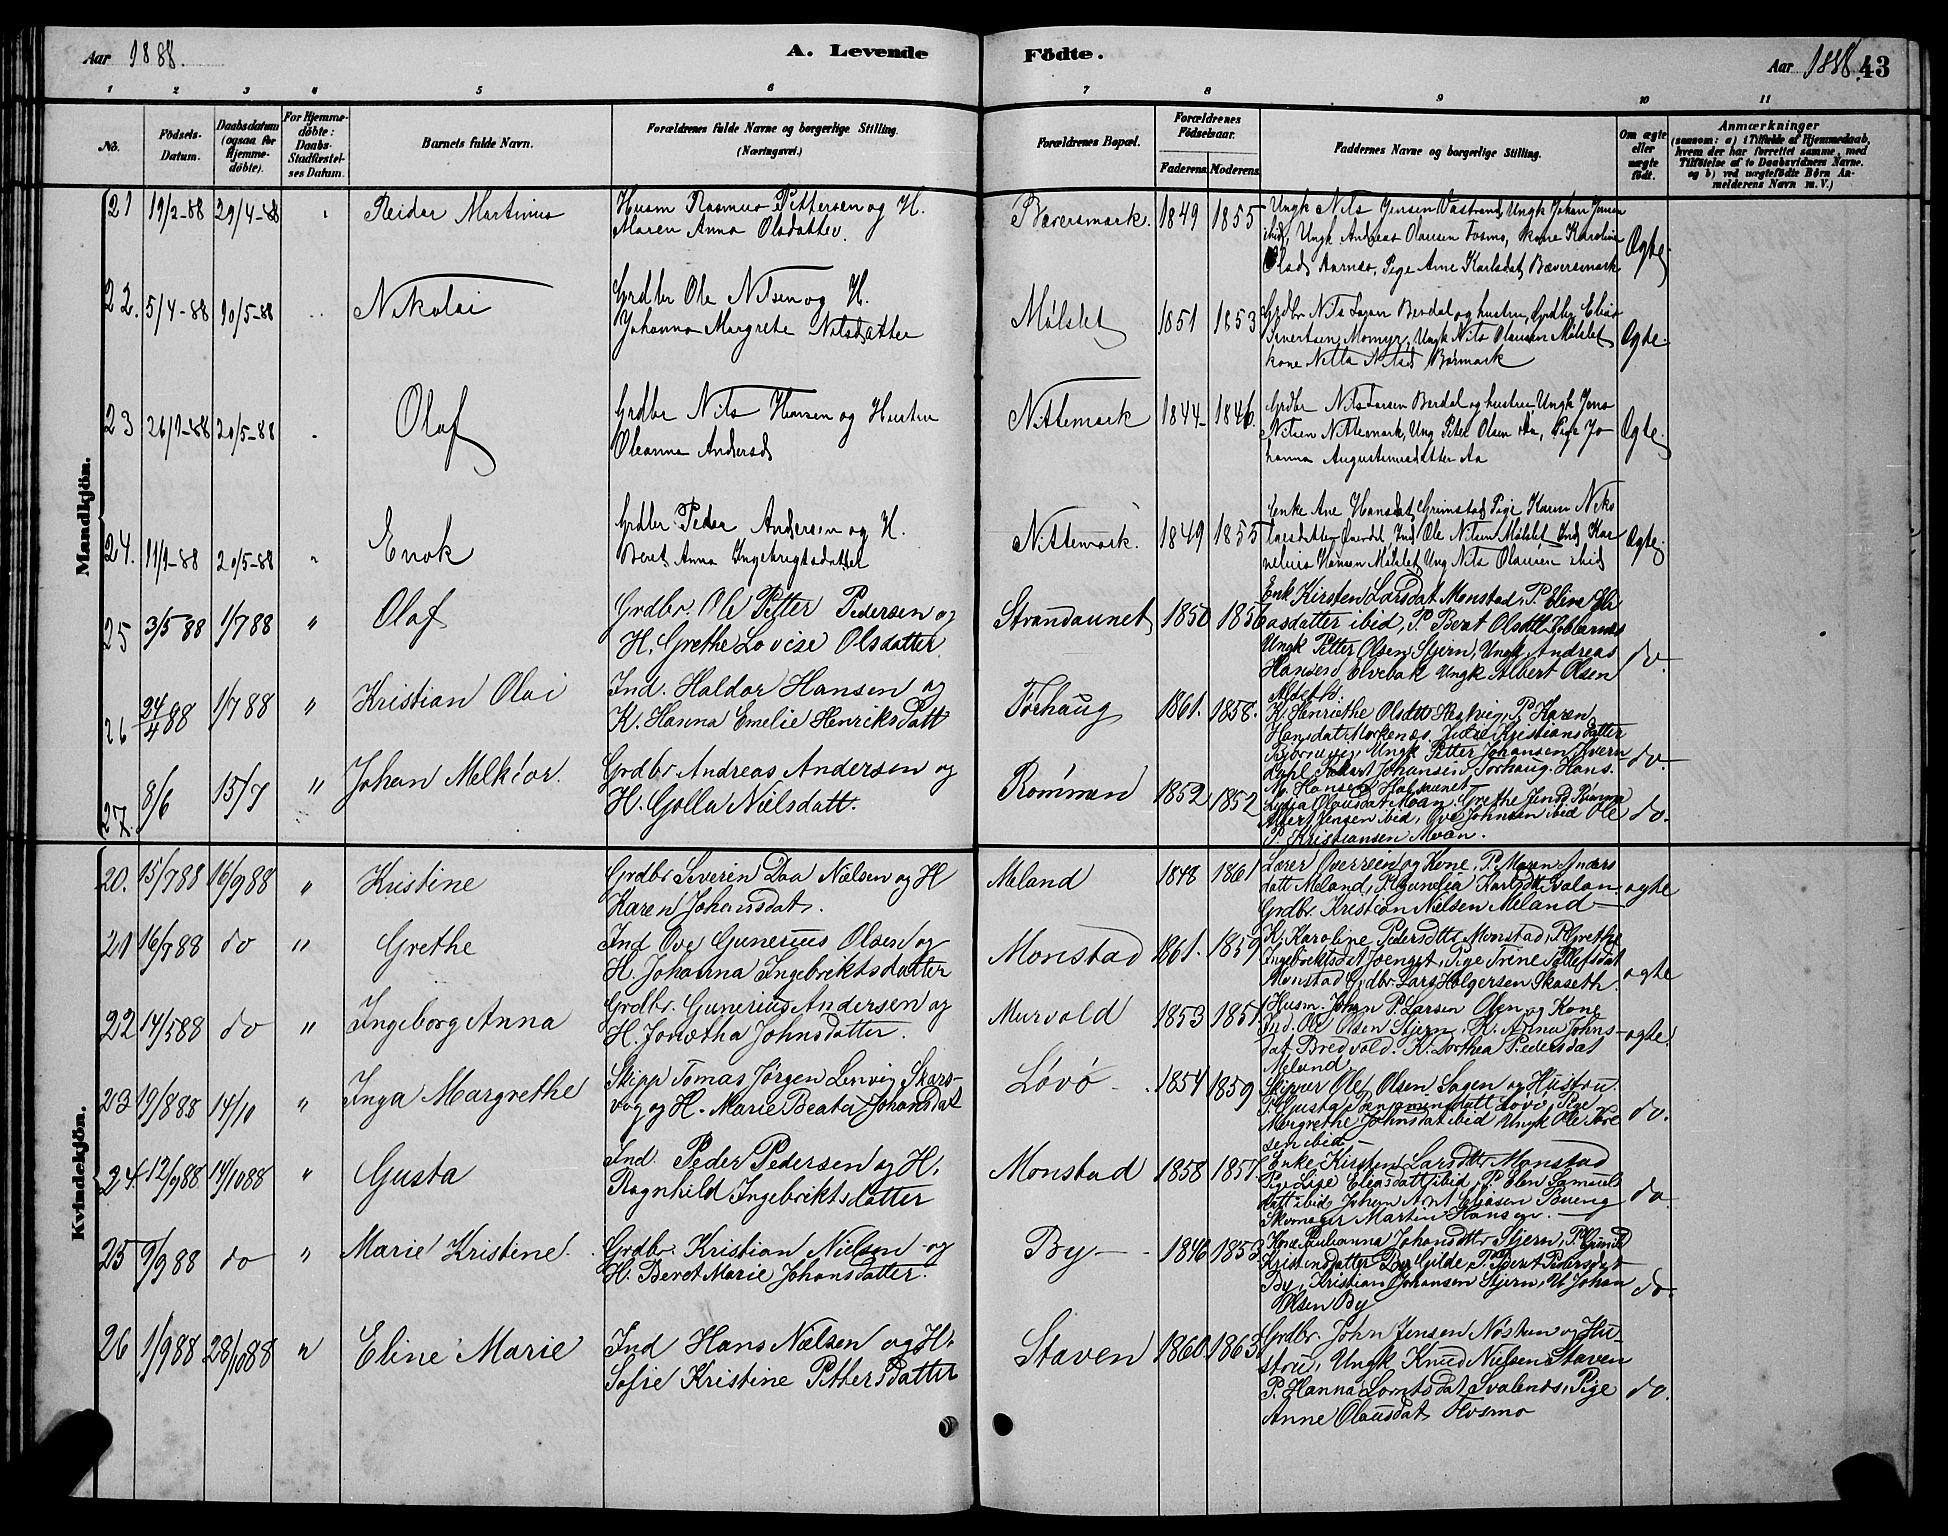 Aar 1888.
A. Levende
Födte.
Aar 1888.
43
1 2 3 4 5 6 7 8 9 10 11
No.
Födsels-Datum.
Daabsdatum (ogsaa for Hjemmedöbte).
For Hjemmedöbte: Daabs-Stadfæstelses Datum.
Barnets fulde Navn.
Forældrenes fulde Navne og borgerlige Stilling. (Næringsvei.)
Forældrenes Bopæl.
Forældrenes Födselsaar.
Faderens Moderens
Faddernes Navne og borgerlige Stilling.
Om ægte eller uægte födt.
Anmærkninger
(saasom: a) i Tilfælde af Hjemmedaab, hvem der har forrettet samme, med Tilföielse af to Daabsvidners Navne. og b) ved uægtefödte Börn Anmelderens Navn m. V.)
Mandkjön.
21 19/2-88 29/4-88 Reidar Martinus
Husm Rasmus Pettersen og H.
Maren Anna Olsdatter.
Bæversmark. 1849 1855
Ungk Nils Jensen Vastrand, Ungk Johan Jensen
ibid, Ungk Andreas Olausen Fosmo, kone Karoline
Olsd Aarnes, Pige Ane Karlsdat Bæversmark
Ægte
22. 5/4-88 10/5-88 Nikolai
Grdbr Ole Nilsen og H.
Johanna Margrete Nilsdatter
Målslet 1851 1853
Grdbr Nils Berdal og hustru, Grdbr Elias
Sivertsen Momyr, Ungk Nils Olausen Målslet
kone Nilsd Børmark
Ægte.
23 20/5-88 Olaf
Grdbr Nils Hansen og Hustru
Oleanna Andersd
Nittemark 1844- 1846.
Grdbr Nils Larsen Berdal og hustru Ungk Jens
Nilsen Nittemark, Ung Peter Olsen Aa, Pige Jo
hanna Augustinusdatter Aa
Ægte.
24. 20/5-88 Enok
Grdbr Peder Andersen og H.
Beret Anna Ingebrigtsdatter
Nittemark. 1849 1855
Enke Ane Hansdat Grimstad, Pige Karen Niko
laisdatter Ind Ole Nilsen Målslet Ind Kor
nelius Hansen Målslet, Ung Nils Olausen ibid
Ægte.
25 3/5 88 1/7 88 " Olaf
Grdbr. Ole Petter Pedersen og
H. Grethe Lovise Olsdatter
Strandaunet 1850
Enk Kirsten Larsdat Monstad, P. Eline Eli
asdatter ibid, P. Berat Olsdtt
Ungk Petter Olsen Stjern, Ungk Andreas
Hansen Elvebak Ungk Albert Olsen
Aldseth.
do.
26 24/4 88 1/7 88 " Kristian Olai
Ind. Haldor Hansen og
K. Hanna Emelie Henriksdatt
Torhaug 1861. 1858.
K. Henriethe Olsdtt P. Karen
Hansdat Morkenæs, Julie Kristiansdatter
Ungk Petter Johansen Kvern
dahl, Johansen Torhaug Hans.
do.
27. 8/6 15/7 " Johan Melkior.
Grdbr Andreas Andersen og
H. Golla Nielsdatt.
Rømmen 1852 1852
N. Hansen
Olausdat Moan, Grethe Jensd
Albert Jensen ibid, Ove Johnsen ibid Ole
P. Kristiansen Moan.
do.
Kvindekjön.
20. 15/7 88 16/9 88 " Kristine
Grdbr Severin Daa Nielsen og H
Karen Johansdat.
Meland 1848 1861
Lærer Overrein og Kone, P. Maren Anders
datt Meland, P. Gunelia Karlsdtt
Grdbr. Kristian Nielsen Meland
ægte
21 16/7 88 do " Grethe
Ind Ove Gunerius Olsen og
H. Johanna Ingebriktsdatter
Monstad 1861. 1859
K. Karoline Pedersdtt Monstad, P. Grethe
Ingebriktsdat Pige Trene
Monstad Grdbr Lars Holgersen Skaseth.
ægte
22 14/5 88 do " Ingeborg Anna
Grdbr. Gunerius Andersen og
H. Jonetha Johnsdatter.
Murvold 1853 1851
Husm. Johan P. Larsen Olsen og Kone
Ind. Ole Olsen Stjern, K. Anna Johns-
dat Bredvold. K. Dorthea Pedersdat
Meland
ægte.
23 19/8 88 14/10 " Inga Margrethe
Skipp Tomas Jørgen Lenvig Skars-
vog og H. Marie Beata Johansdat
Løvø 1854 1859
Skipper Ole Olsen Sagen og Hustru.
P. Gusta Benjaminsdatt Løvø, Pige
Margrethe Johnsdat ibid Ungk Ole Tøre
sen ibid
do.
24. 12/9 88 14/10 88 " Gusta
Ind. Peder Pedersen og H.
Ragnhild Ingebriktsdatter
Monstad 1858 1857.
Enke Kirsten Larsdtt Monstad
Pige Lise Eliasdatt ibid, P. Elen Samuels
datt ibid, Johan Arnt Eliasen Bueng
Skomager Martin Hansen.
do
25 9/9 88 do " Marie Kristine
Grdbr. Kristian Nielsen og
H. Beret Marie Johansdatter.
By 1846 1853.
Kone Julianna Johansdtt Stjern, P.
Kristensdatter By Gilde, P. Berit Pedersdat
By, Kristian Johansen Stjern, U. Johan
Olsen By
do.
26 1/9 88 28/10 88 " Eline Marie
Ind Hans Nielsen og H.
Sofie Kristine Pettersdatter
Staven 1860 1863
Grdbr. John Jensen Nøstun og Hu-
stru, Ungk Knud Nielsen Staven
P. Hanna Lorntsdat Svalenes, Pige
Anne Olausdat Fosmo
do.